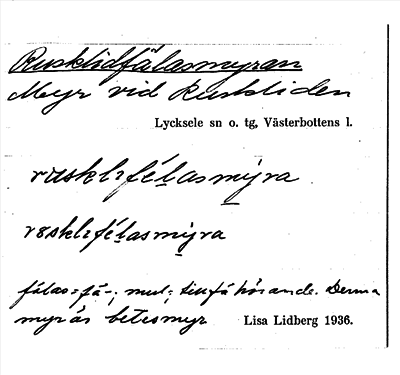 Rusklidfälasmyran
Myr vidRuskliden
Lycksele sn o. tg, Västerbottens l.
ruskl₂féḷasmỳra
rɵskl₂féḷasmỳra
fälas = fä-; mul-; tillfä hörande. Denna
myr är betesmyr
Lisa Lidberg 1936.